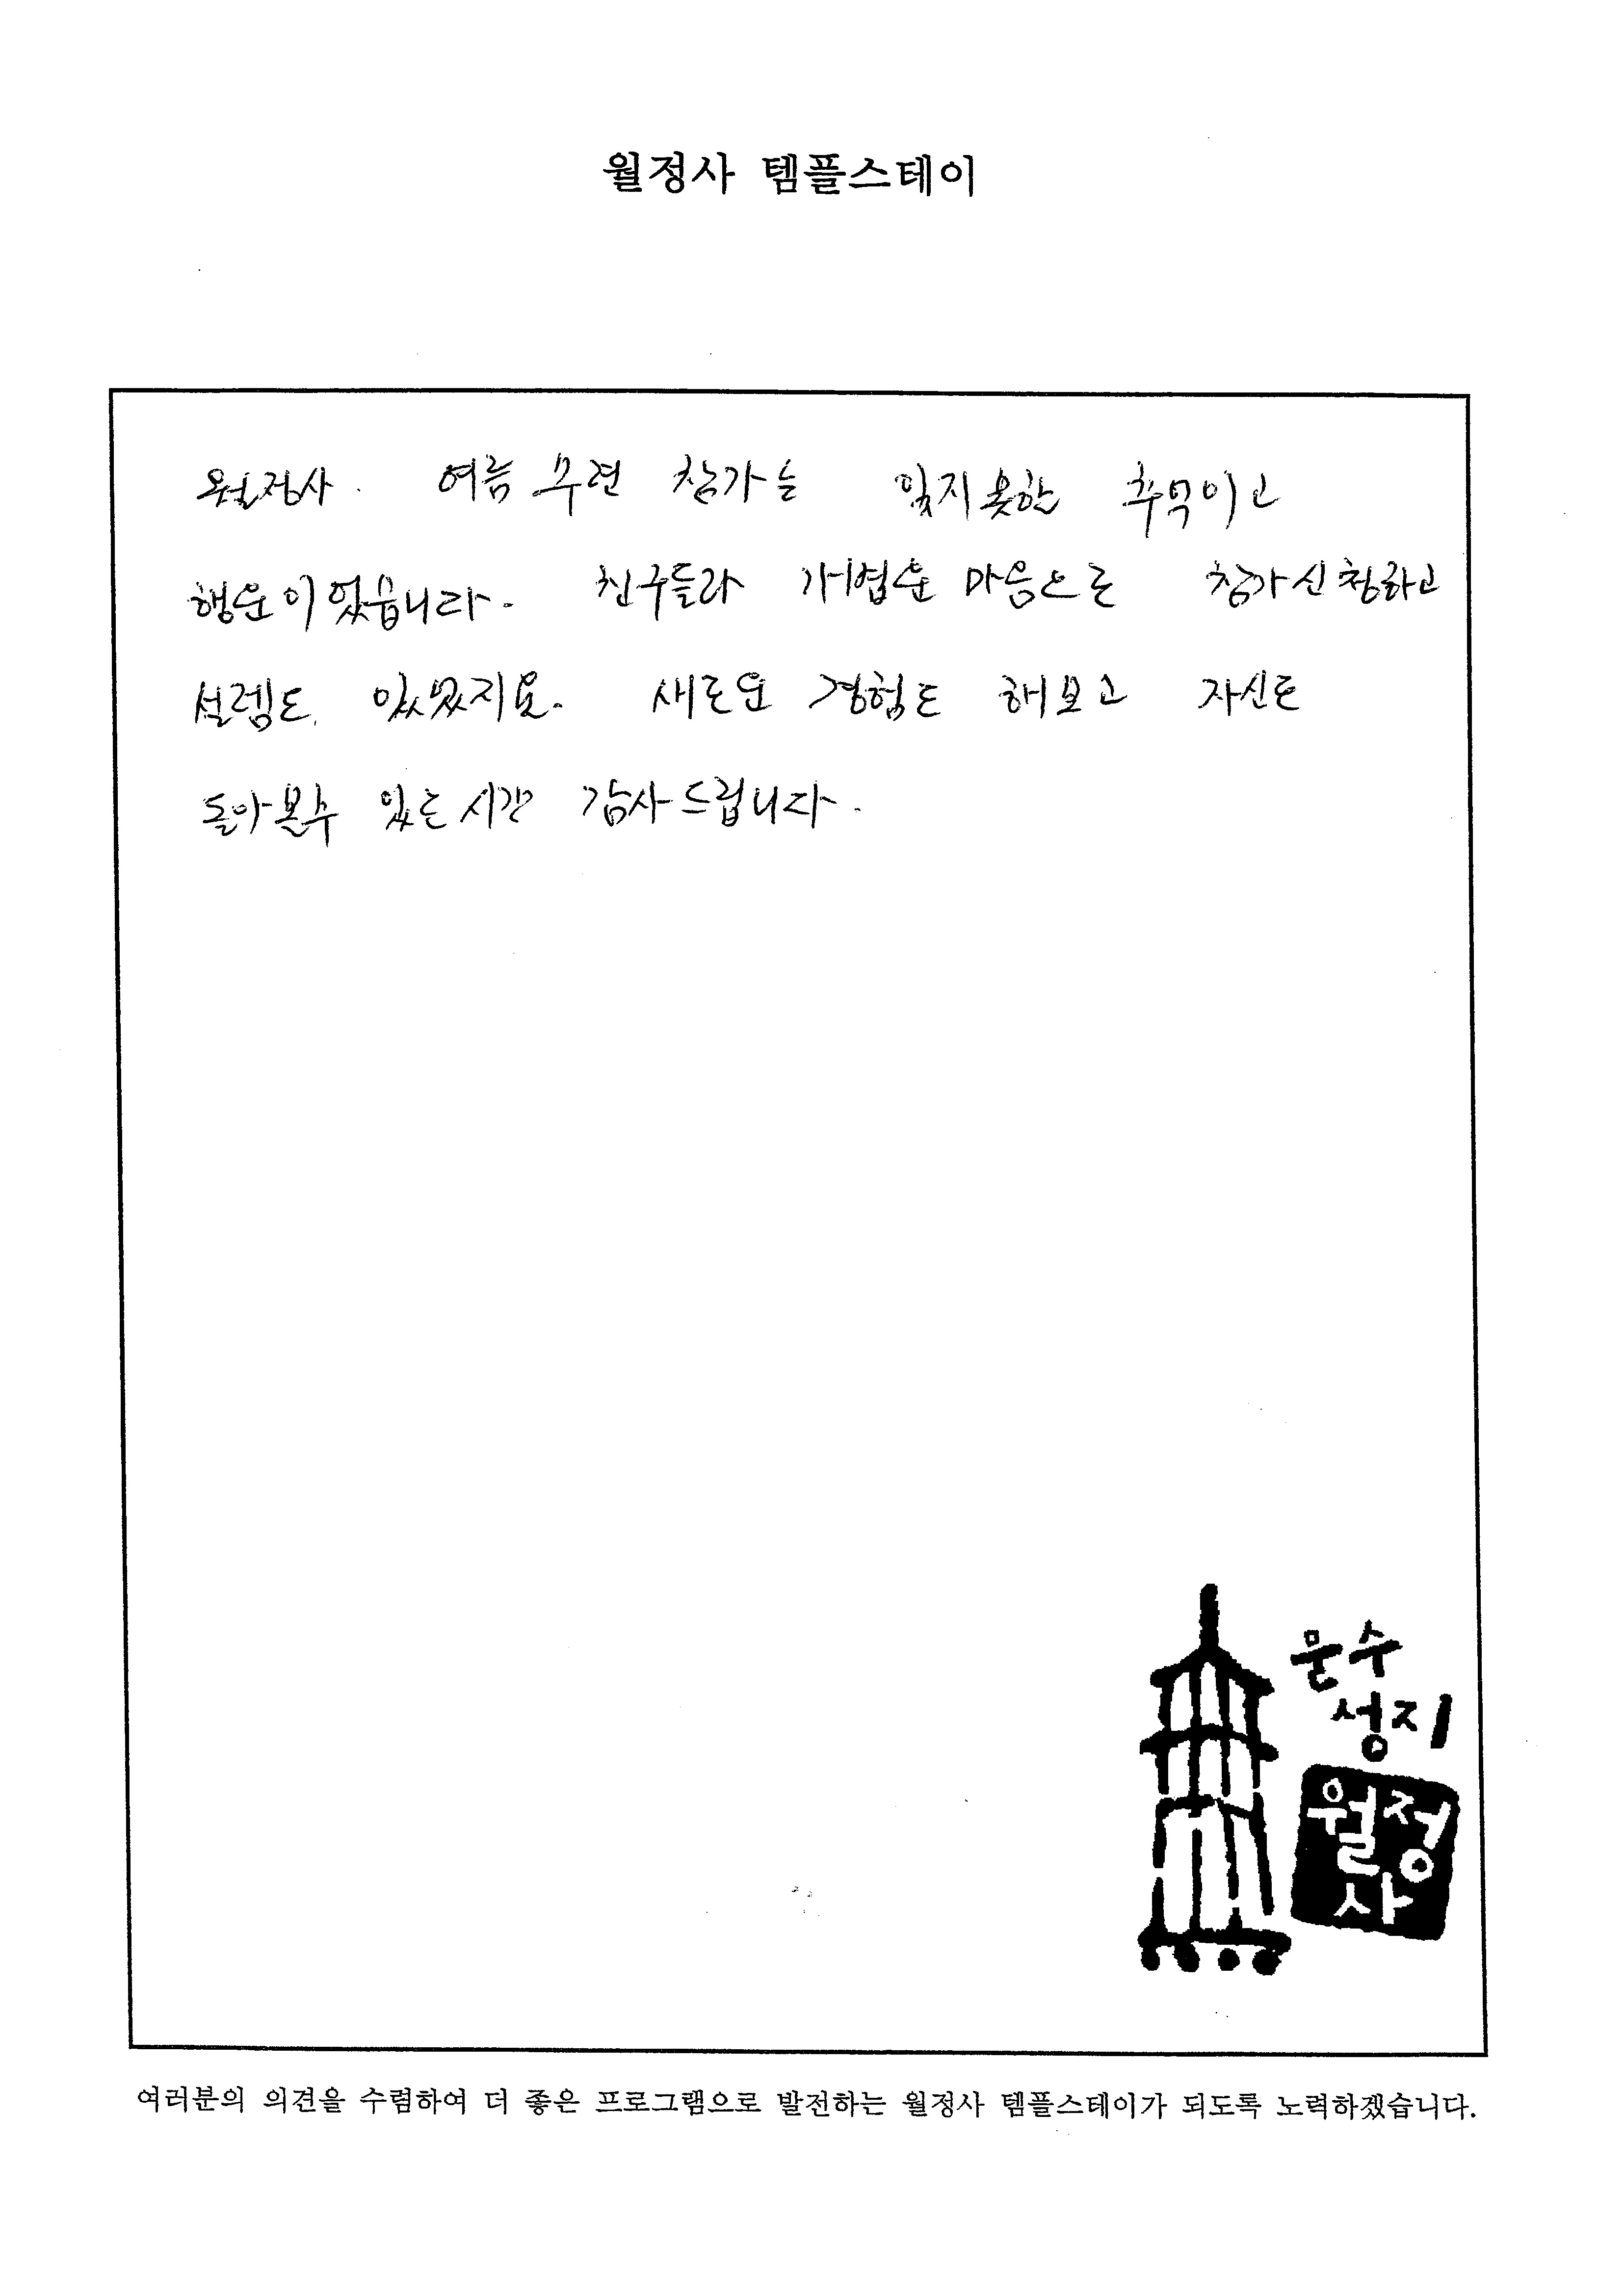 월정사 템플스테이
월정사. 여름 수련 참가는 잊지못한 추억이고
행운이었습니다. 친구들과 가볍운 마음으로 참가신청하고
설렘도 있었지요. 새로운 경험도 해보고 자신도
돌아볼수 있는 시간 감사드립니다.
문수
성지
월정
사
여러분의 의견을 수렴하여 더 좋은 프로그램으로 발전하는 월정사 템플스테이가 되도록 노력하겠습니다.